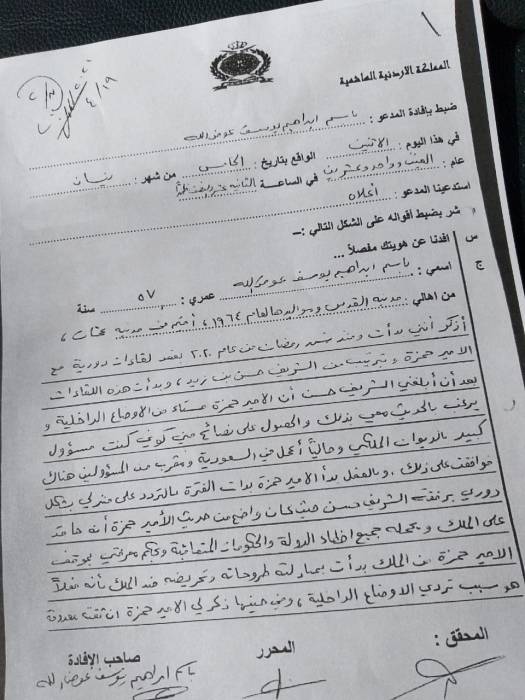 المملكة الاردنية الهاشمية
٤/١٩
ضبط بإفادة المدعو : باسم ابراهيم يوسف عوض الله
في هذا اليوم : الاثنين الواقع بتاريخ : الخامس من شهر : نيسان
عام : ألفين وواحد وعشرين في الساعة : الثانية عشر ظهراً
استدعينا المدعو : أعلاه
شر بضبط اقواله على الشكل التالي :–
س افدنا عن هويتك مفصلاً ...
ج اسمي : باسم ابراهيم يوسف عوض الله عمري : ٥٧ سنة
من اهالي : مدينة القدس ومواليدها لعام ١٩٦٤ ، أقيم في مدينة عمان ،
أذكر أنني بدأت ومنذ شهر رمضان من عام ٢٠٢٠ بعقد لقاءات دورية مع
الامير حمزة وبترتيب من الشريف حسن بن زيد ، وبدأت هذه اللقاءات
بعد أن أبلغني الشريف حسن أن الامير حمزة مستاء من الاوضاع الداخلية و
يرغب بالحديث معي بذلك والحصول على نصائح مني كوني كنت مسؤول
كبير بالديوان الملكي وحالياً أعمل في السعودية ومقرب من المسؤولين هناك
فوافقت على ذلك . وبالفعل بدأ الامير حمزة بذات الفترة بالتردد على منزلي بشكل
دوري برفقة الشريف حسن حيث كان واضح من حديث الأمير حمزة أنه حاقد
على الملك ويحمله جميع أخطاء الدولة والحكومات المتعاقبة وبحكم معرفتي بموقف
الامير حمزة من الملك بدأت بمبادلته طروحاته وتحريضه ضد الملك بأنه فعلاً
هو سبب تردي الاوضاع الداخلية ، وفي حينها ذكر لي الامير حمزة ان
المحقق : المحرر صاحب الإفادة
باسم ابراهيم يوسف عوض الله